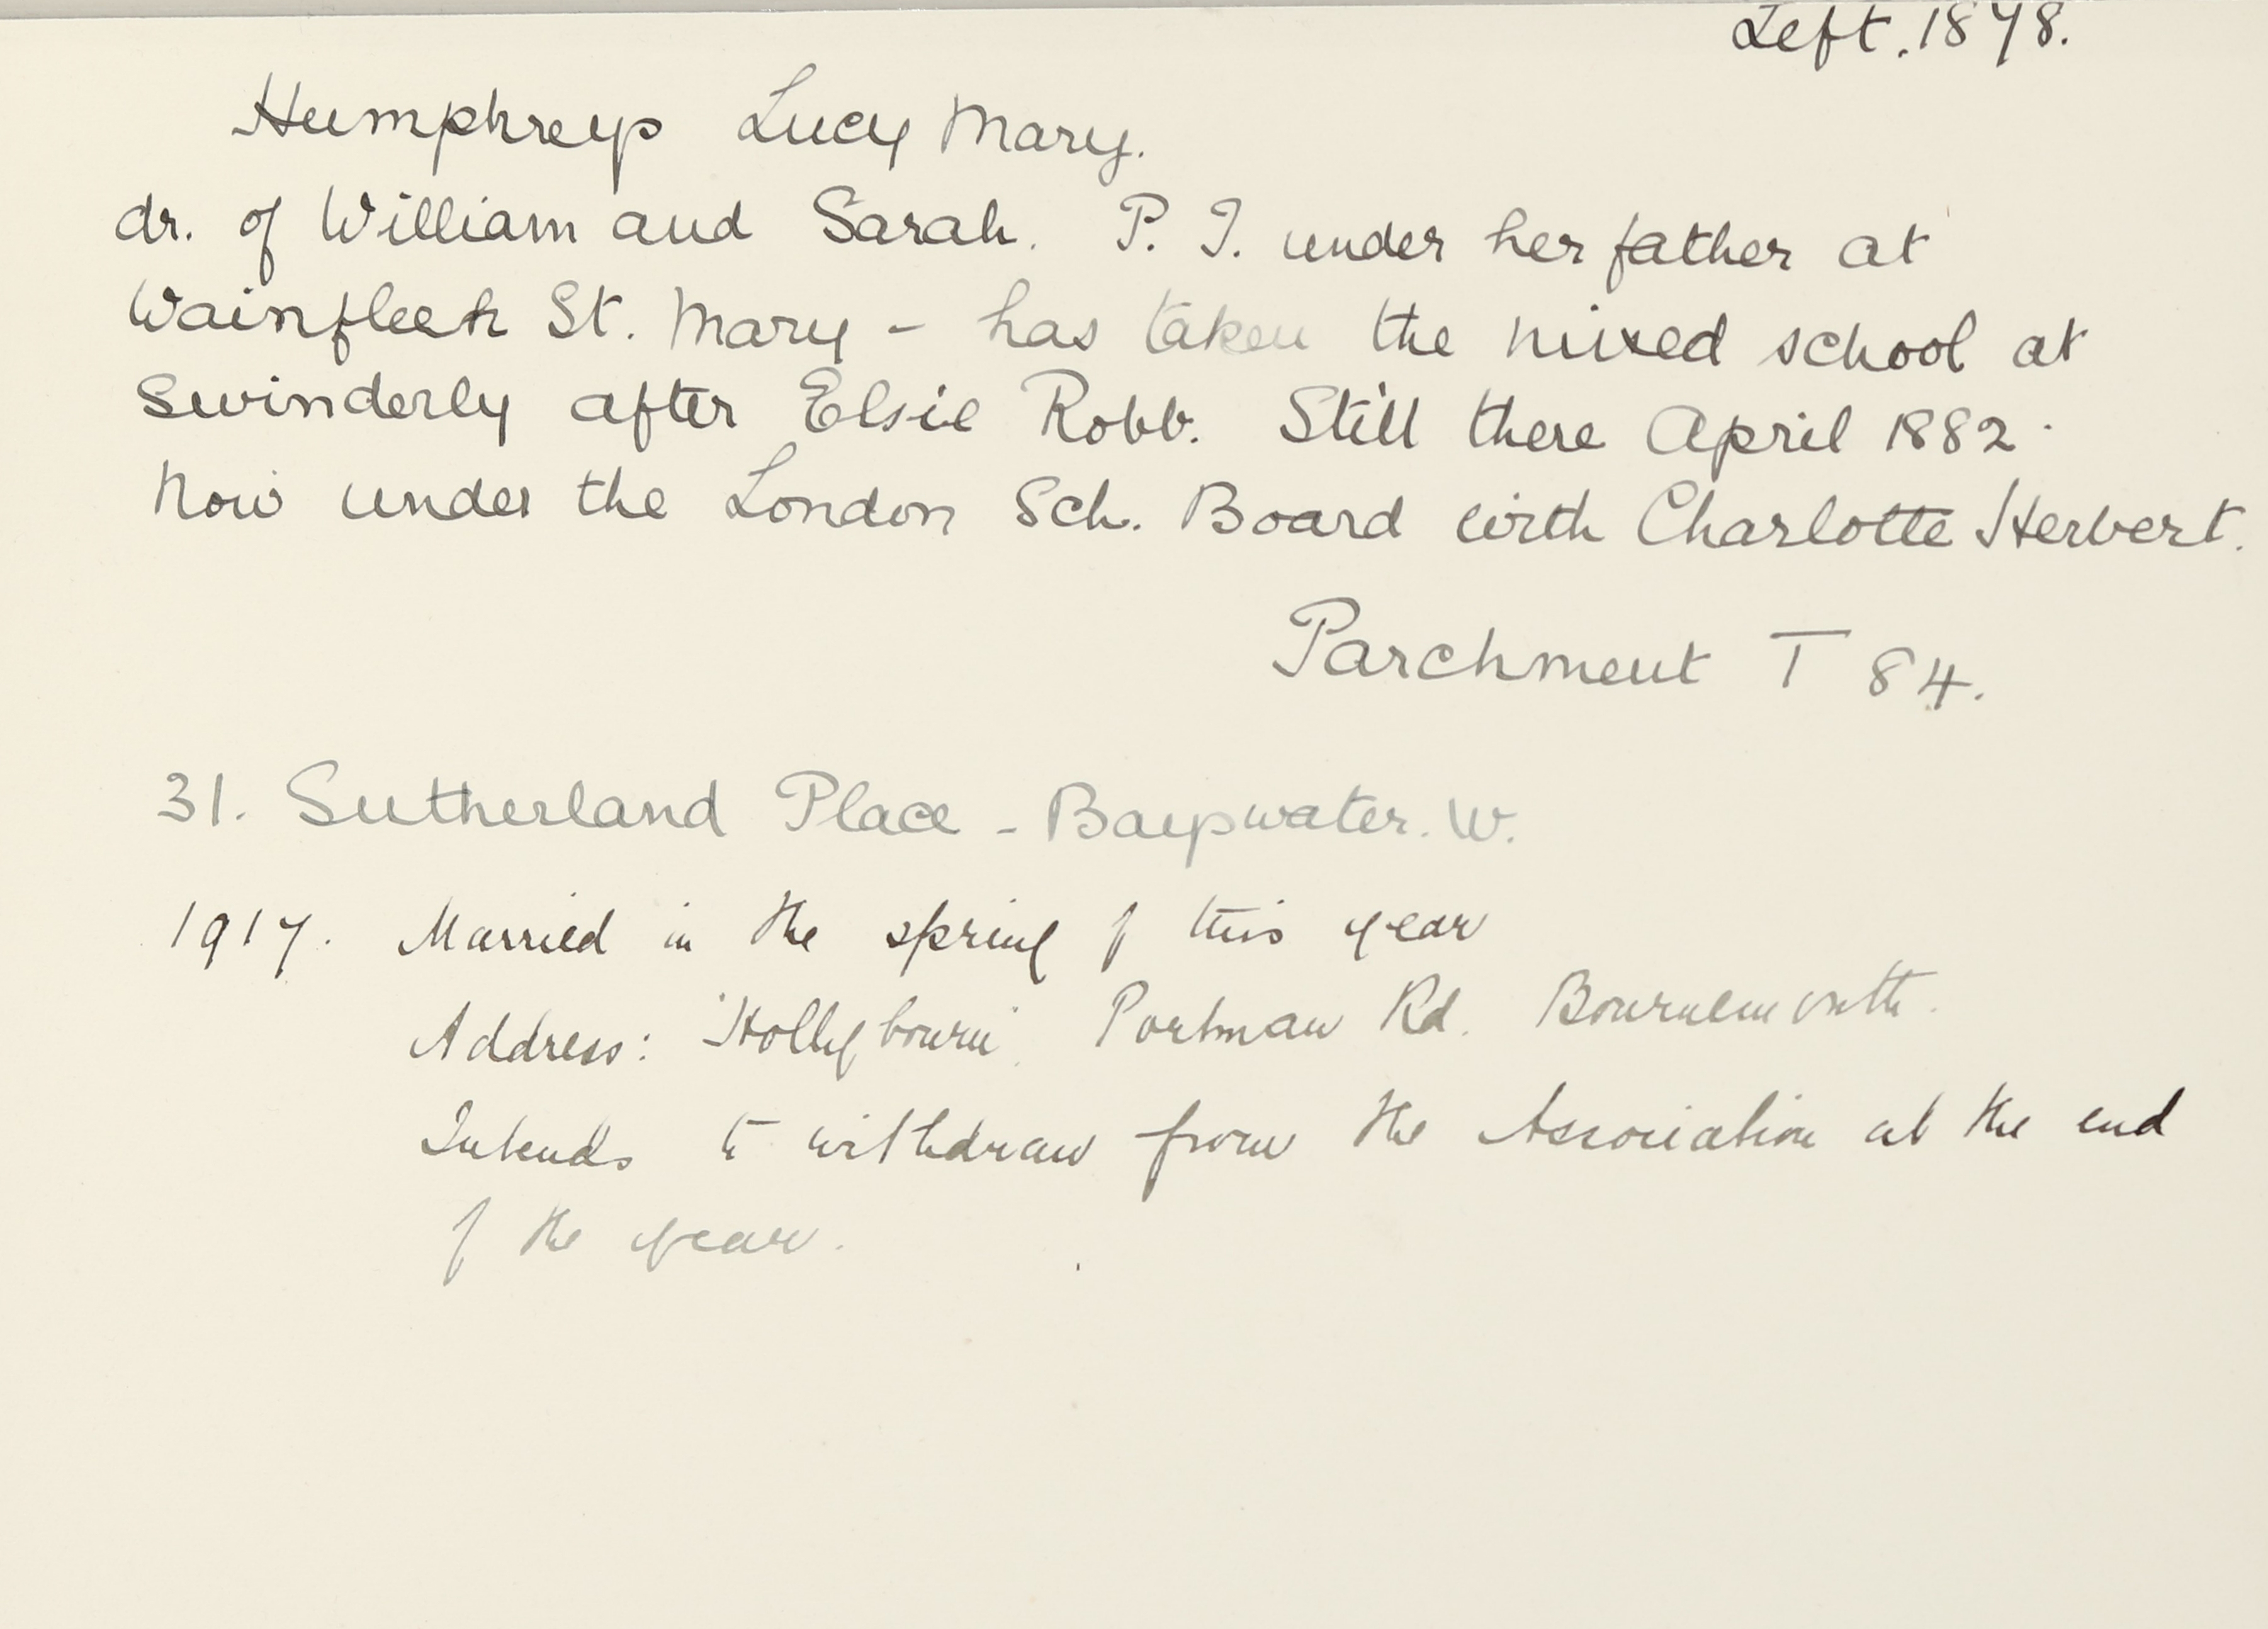 Left. 1878.
Humphreys Lucy Mary.
dr. of William and Sarah. P. T. under her father at
Wainfleet St. Mary - has taken the mixed school at
Swinderly after Elsie Robb. Still there April 1882.
Now under the London Sch. Board with Charlotte Herbert.
Parchment T 84.
31. Sutherland Place - Bayswater. W.
1917. Married in the spring of this year
Address: 'Hollybourne' Portman Rd. Bournemouth.
Intends to withdraw from the Association at the end
of the year.